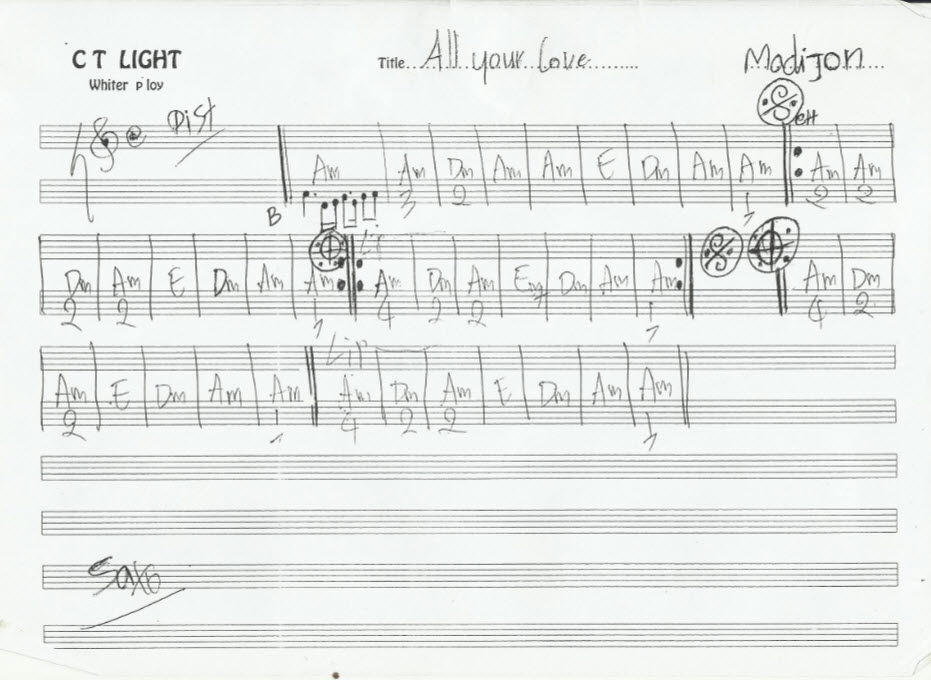 C T LIGHT
Whiter p loy
Title All your Love
Madijon
Dist
Am Am Dm Am Am E Dm Am Am Am Am
3 2 1 2 2
B
Lir
Dm Am E Dm Am Am Am Dm Am Em7 Dm Am Am Am Dm
2 2 1 4 2 2 1 4 2
Lir
Am E Dm Am Am Am Dm Am E Dm Am Am
2 1 4 2 2 1
Saxo